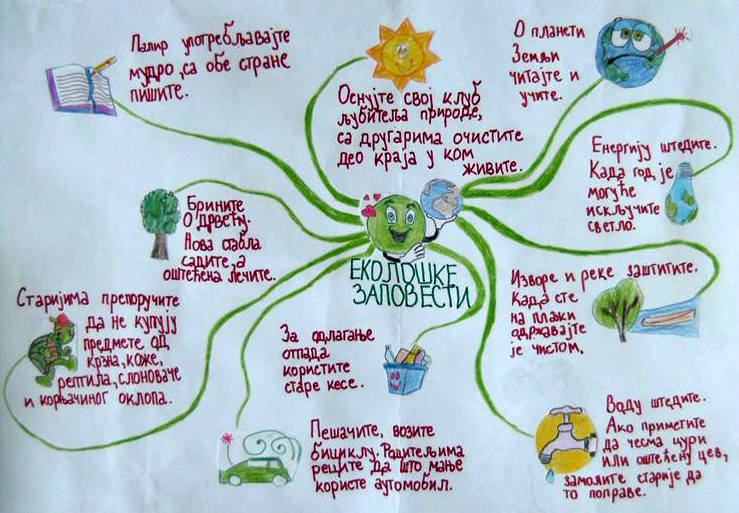 Папир употребљавајте
мудро, са обе стране
пишите.
Оснујте свој клуб
љубитеља природе,
са другарима очистите
део краја у ком
живите.
О планети
Земљи
читајте и
учите.
Енергију штедите.
Када год је
могуће
искључите
светло.
Брините
о дрвећу.
Нова стабла
садите, а
оштећена лечите.
ЕКОЛОШКЕ
ЗАПОВЕСТИ
Изворе и реке заштитите.
Када сте
на плажи
одржавајте
је чистом.
Старијима препоручите
да не купују
предмете од
крзна, коже,
рептила, слоноваче
и корњачиног оклопа.
За одлагање
отпада
користите
старе кесе.
Пешачите, возите
бициклу. Родитељима
реците да што мање
користе аутомобил.
Воду штедите.
Ако приметите
да чесма цури
или оштећену цев,
замолите старије да
то поправе.